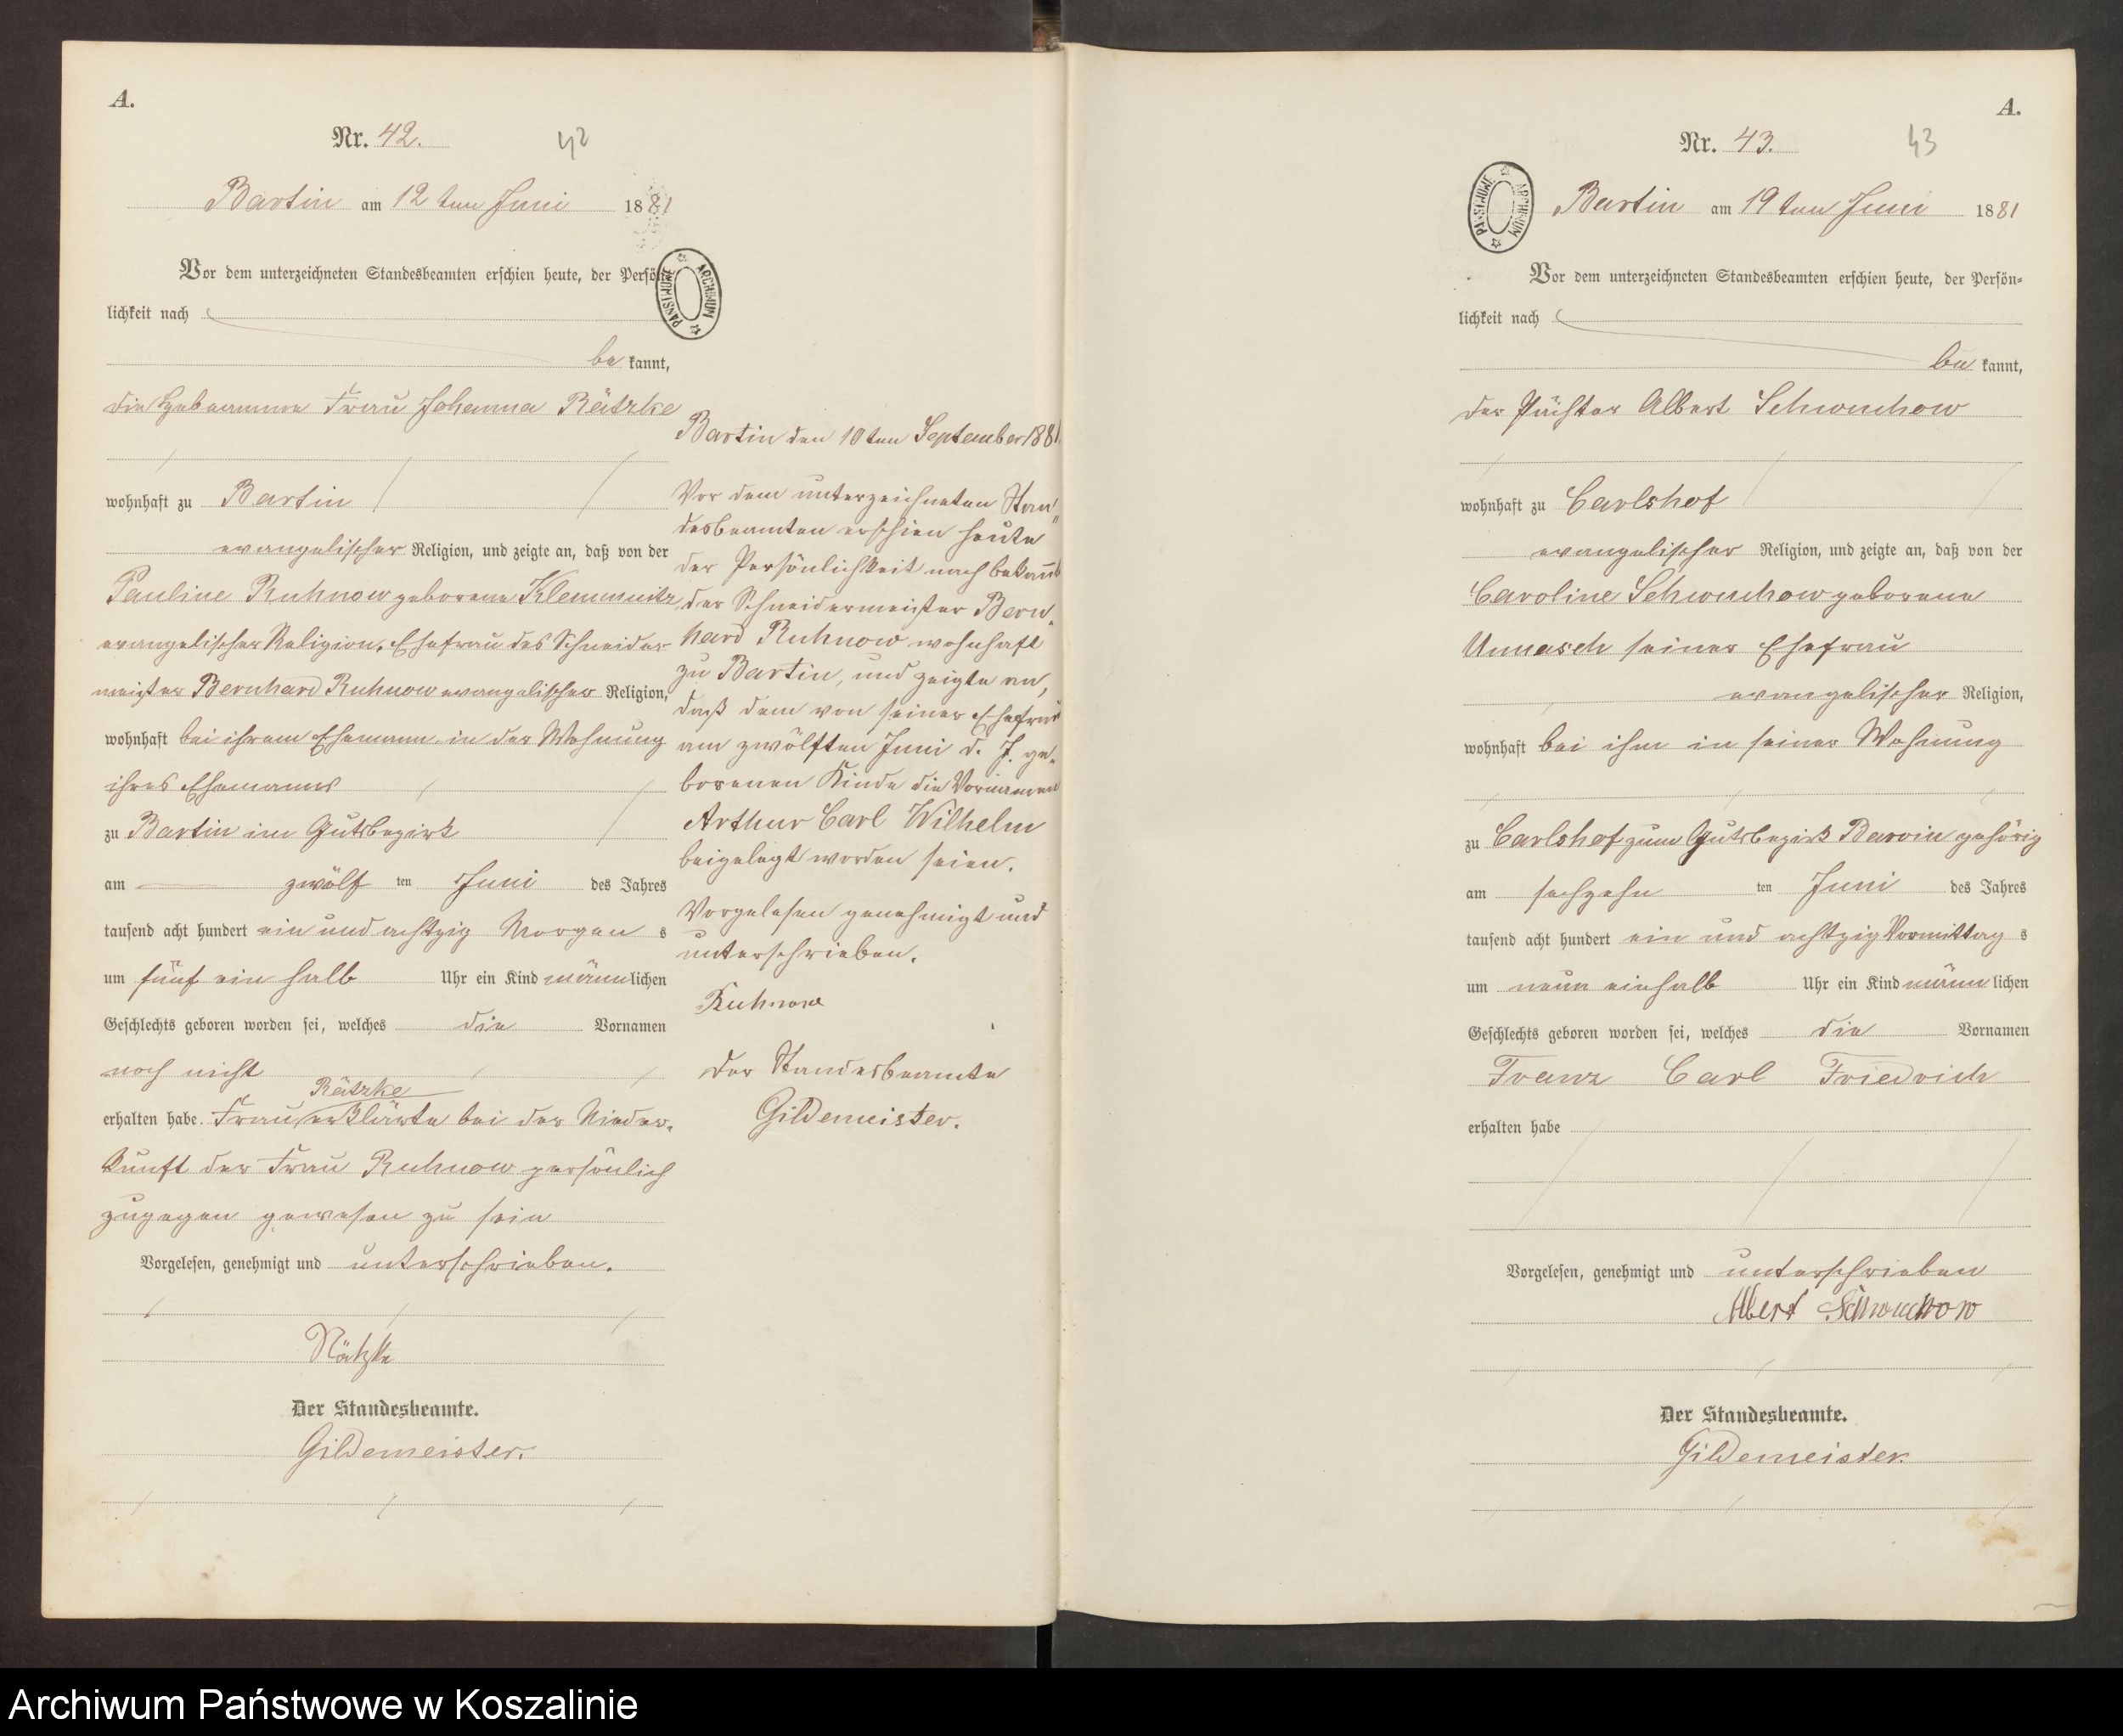 A.
Nr. 42.
42
Bartin am 12ten Juni 1881
Vor dem unterzeichneten Standesbeamten erschien heute, der Persön-
lichkeit nach
bekannt,
die Hebeamme Frau Johanna Rätzke
wohnhaft zu Bartin
evangelischer Religion, und zeigte an, daß von der
Pauline Ruhnow geborene Klemmnitz
evangelischer Religion, Ehefrau des Schneider
meister Bernhard Ruhnow evangelischer Religion,
wohnhaft bei ihrem Ehemann in der Wohnung
ihres Ehemannes
zu Bartin im Gutsbezirk
am zwölf ten Juni des Jahres
tausend acht hundert ein und achtzig Morgen s
um fünf ein halb Uhr ein Kind männlichen
Geschlechts geboren worden sei, welches die Vornamen
noch nicht
Rätzke
erhalten habe. Frau erklärte bei der Nieder-
kunft der Frau Ruhnow persönlich
zugegen gewesen zu sein
Vorgelesen, genehmigt und unterschrieben.
Rätzke
Der Standesbeamte.
Gildemeister.
ARCHIWUM PAŃSTWOWE
Bartin den 10ten September 1881
Vor dem unterzeichneten Stan"
desbeamten erschien heute
der Persönlichkeit nach bekannt
der Schneidermeister Bern-
hard Ruhnow wohnhaft
zu Bartin, und zeigte an,
daß dem von seiner Ehefrau
am zwölften Juni d. J. ge-
borenen Kinde die Vornamen
Arthur Carl Wilhelm
beigelegt worden seien.
Vorgelesen genehmigt und
unterschrieben.
Ruhnow
Der Standesbeamte
Gildemeister.
A.
Nr. 43.
43
ARCHIWUM PAŃSTWOWE
Bartin am 19ten Juni 1881
Vor dem unterzeichneten Standesbeamten erschien heute, der Persön-
lichkeit nach
bekannt,
der Pächter Albert Schwuchow
wohnhaft zu Carlshof
evangelischer Religion, und zeigte an, daß von der
Caroline Schwuchow geborene
Unnasch seiner Ehefrau
evangelischer Religion,
wohnhaft bei ihm in seiner Wohnung
zu Carlshof zum Gutsbezirk Barvin gehörig
am sechzehn ten Juni des Jahres
tausend acht hundert ein und achtzig Vormittag s
um neun einhalb Uhr ein Kind männlichen
Geschlechts geboren worden sei, welches die Vornamen
Franz Carl Friedrich
erhalten habe
Vorgelesen, genehmigt und unterschrieben
Albert Schwuchow
Der Standesbeamte.
Gildemeister.
Archiwum Państwowe w Koszalinie